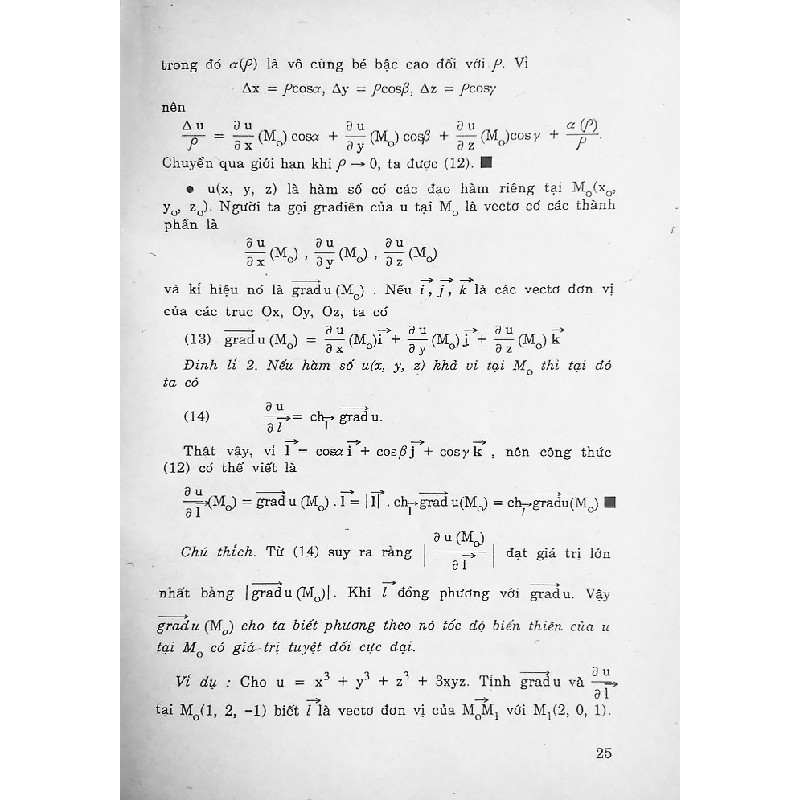 trong đó α(ρ) là vô cùng bé bậc cao đối với ρ. Vì
Δx = ρcosα, Δy = ρcosβ, Δz = ρcosγ
nên
Δu/ρ = ∂u/∂x (M₀) cosα + ∂u/∂y (M₀) cosβ + ∂u/∂z (M₀)cosγ + α(ρ)/ρ.
Chuyển qua giới hạn khi ρ → 0, ta được (12). ■
• u(x, y, z) là hàm số có các đạo hàm riêng tại M₀(x₀,
y₀, z₀). Người ta gọi građiên của u tại M₀ là vectơ có các thành
phần là
∂u/∂x (M₀) , ∂u/∂y (M₀) , ∂u/∂z (M₀)
và kí hiệu nó là grad⃗ u (M₀) . Nếu i⃗, j⃗, k⃗ là các vectơ đơn vị
của các trục Ox, Oy, Oz, ta có
(13) grad⃗ u (M₀) = ∂u/∂x (M₀)i⃗ + ∂u/∂y (M₀) j⃗ + ∂u/∂z (M₀) k⃗
Định lí 2. Nếu hàm số u(x, y, z) khả vi tại M₀ thì tại đó
ta có
(14) ∂u/∂l⃗ = ch_l⃗ grad⃗ u.
Thật vậy, vì l⃗ = cosα i⃗ + cosβ j⃗ + cosγ k⃗ , nên công thức
(12) có thể viết là
∂u/∂l⃗ (M₀) = grad⃗ u (M₀) . l⃗ = |l⃗| . ch_l⃗ grad⃗ u(M₀) = ch_l⃗ grad⃗u(M₀) ■
Chú thích. Từ (14) suy ra rằng | ∂u (M₀)/∂l⃗ | đạt giá trị lớn
nhất bằng |grad⃗ u (M₀)|. Khi l⃗ đồng phương với grad⃗ u. Vậy
grad⃗ u (M₀) cho ta biết phương theo nó tốc độ biến thiên của u
tại M₀ có giá trị tuyệt đối cực đại.
Ví dụ : Cho u = x³ + y³ + z³ + 3xyz. Tính grad⃗ u và ∂u/∂l⃗
tại M₀(1, 2, -1) biết l⃗ là vectơ đơn vị của M₀M₁⃗ với M₁(2, 0, 1).
25